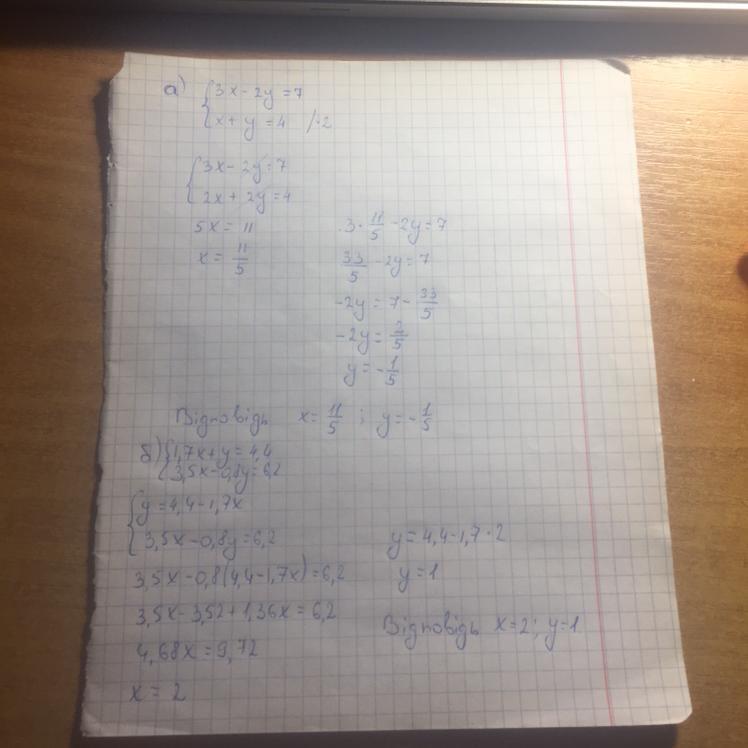 а) {3x - 2y = 7
x + y = 4 /·2
{3x - 2y = 7
2x + 2y = 4
5x = 11
x = 11/5
3 · 11/5 - 2y = 7
33/5 - 2y = 7
-2y = 7 - 33/5
-2y = 2/5
y = -1/5
Відповідь x = 11/5 ; y = -1/5
б) {1,7x + y = 4,4
3,5x - 0,8y = 6,2
{y = 4,4 - 1,7x
3,5x - 0,8y = 6,2
3,5x - 0,8(4,4 - 1,7x) = 6,2
3,5x - 3,52 + 1,36x = 6,2
4,68x = 9,72
x = 2
y = 4,4 - 1,7 · 2
y = 1
Відповідь x = 2; y = 1